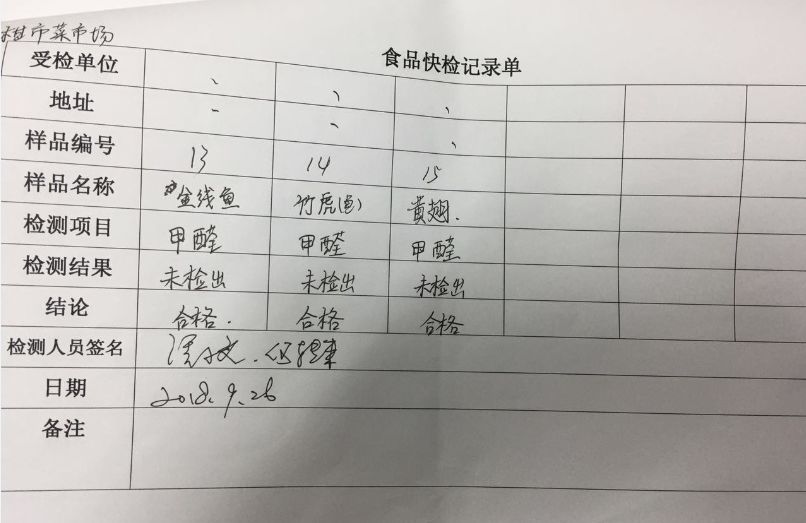 市菜市场
食品快检记录单
受检单位 、 、 、
地址 - 、 、
样品编号 13 14 15
样品名称 金线鱼 竹虎(鱼) 黄翅.
检测项目 甲醛 甲醛 甲醛
检测结果 未检出 未检出 未检出
结论 合格. 合格 合格
检测人员签名
日期 2018.9.26
备注